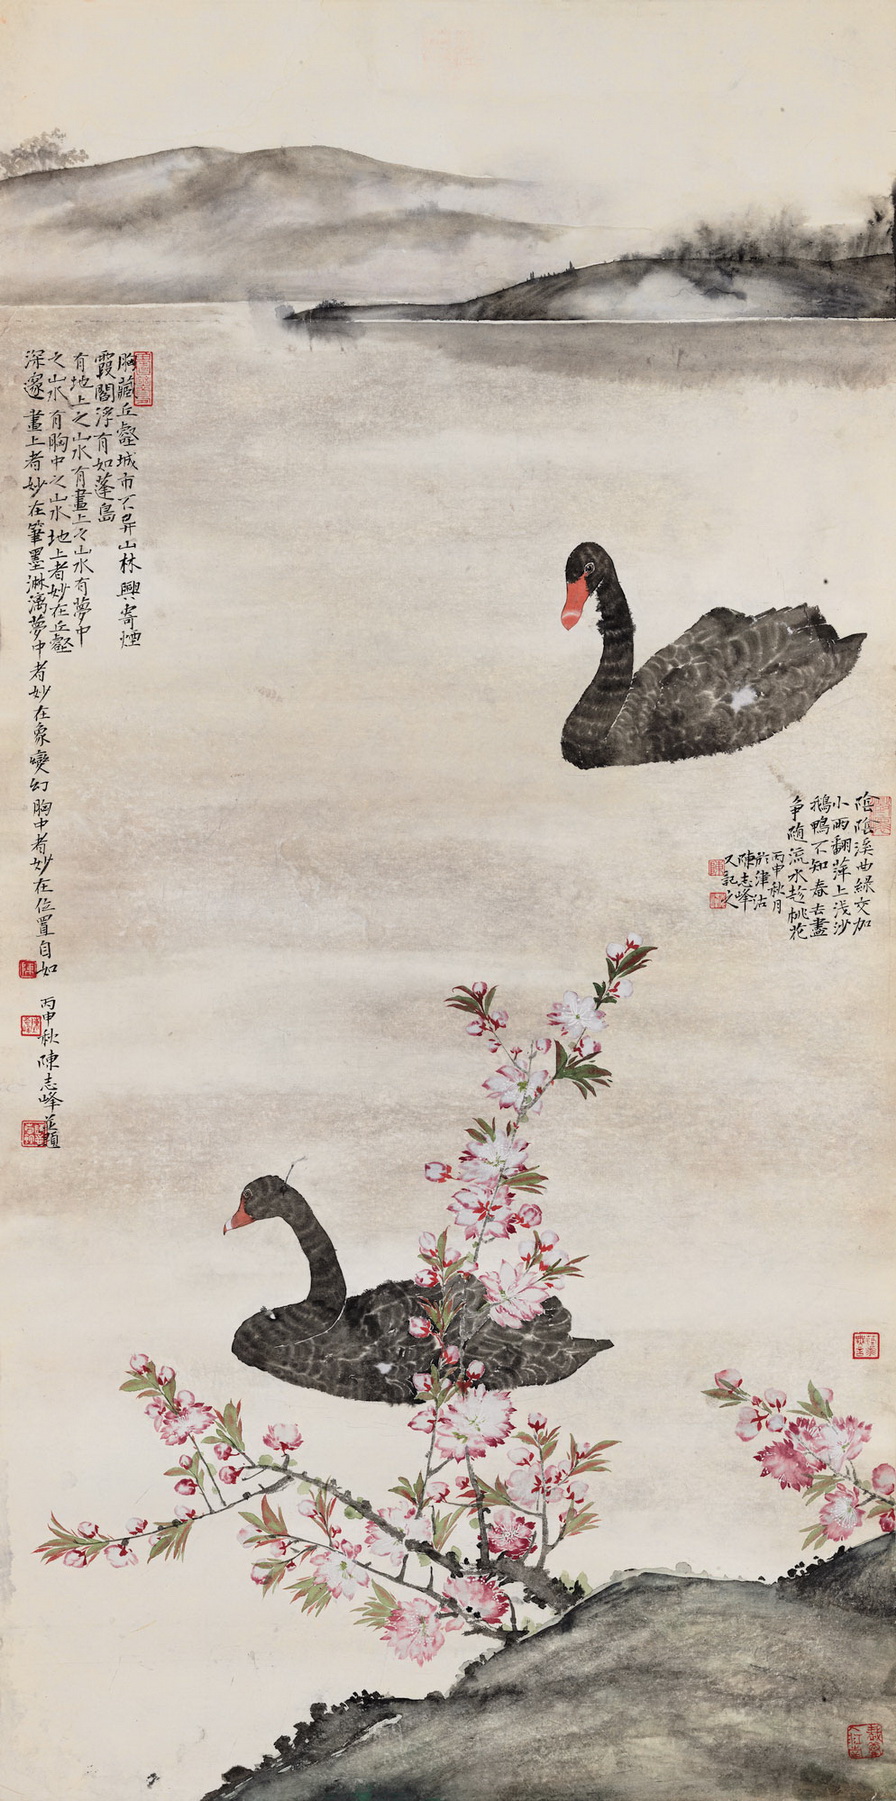 胸藏丘壑城市不異山林興寄煙
霞閻浮有如蓬島
有地上之山水有畫上之山水有夢中
之山水有胸中之山水地上者妙在丘壑
深邃畫上者妙在筆墨淋漓夢中者妙在象變幻胸中者妙在位置自如
丙申秋陳志峰並題
陰陰溪曲綠交加
小雨翻萍上淺沙
鵝鴨不知春去盡
爭隨流水趁桃花
丙申秋月
於津沽
陳志峰
又記之